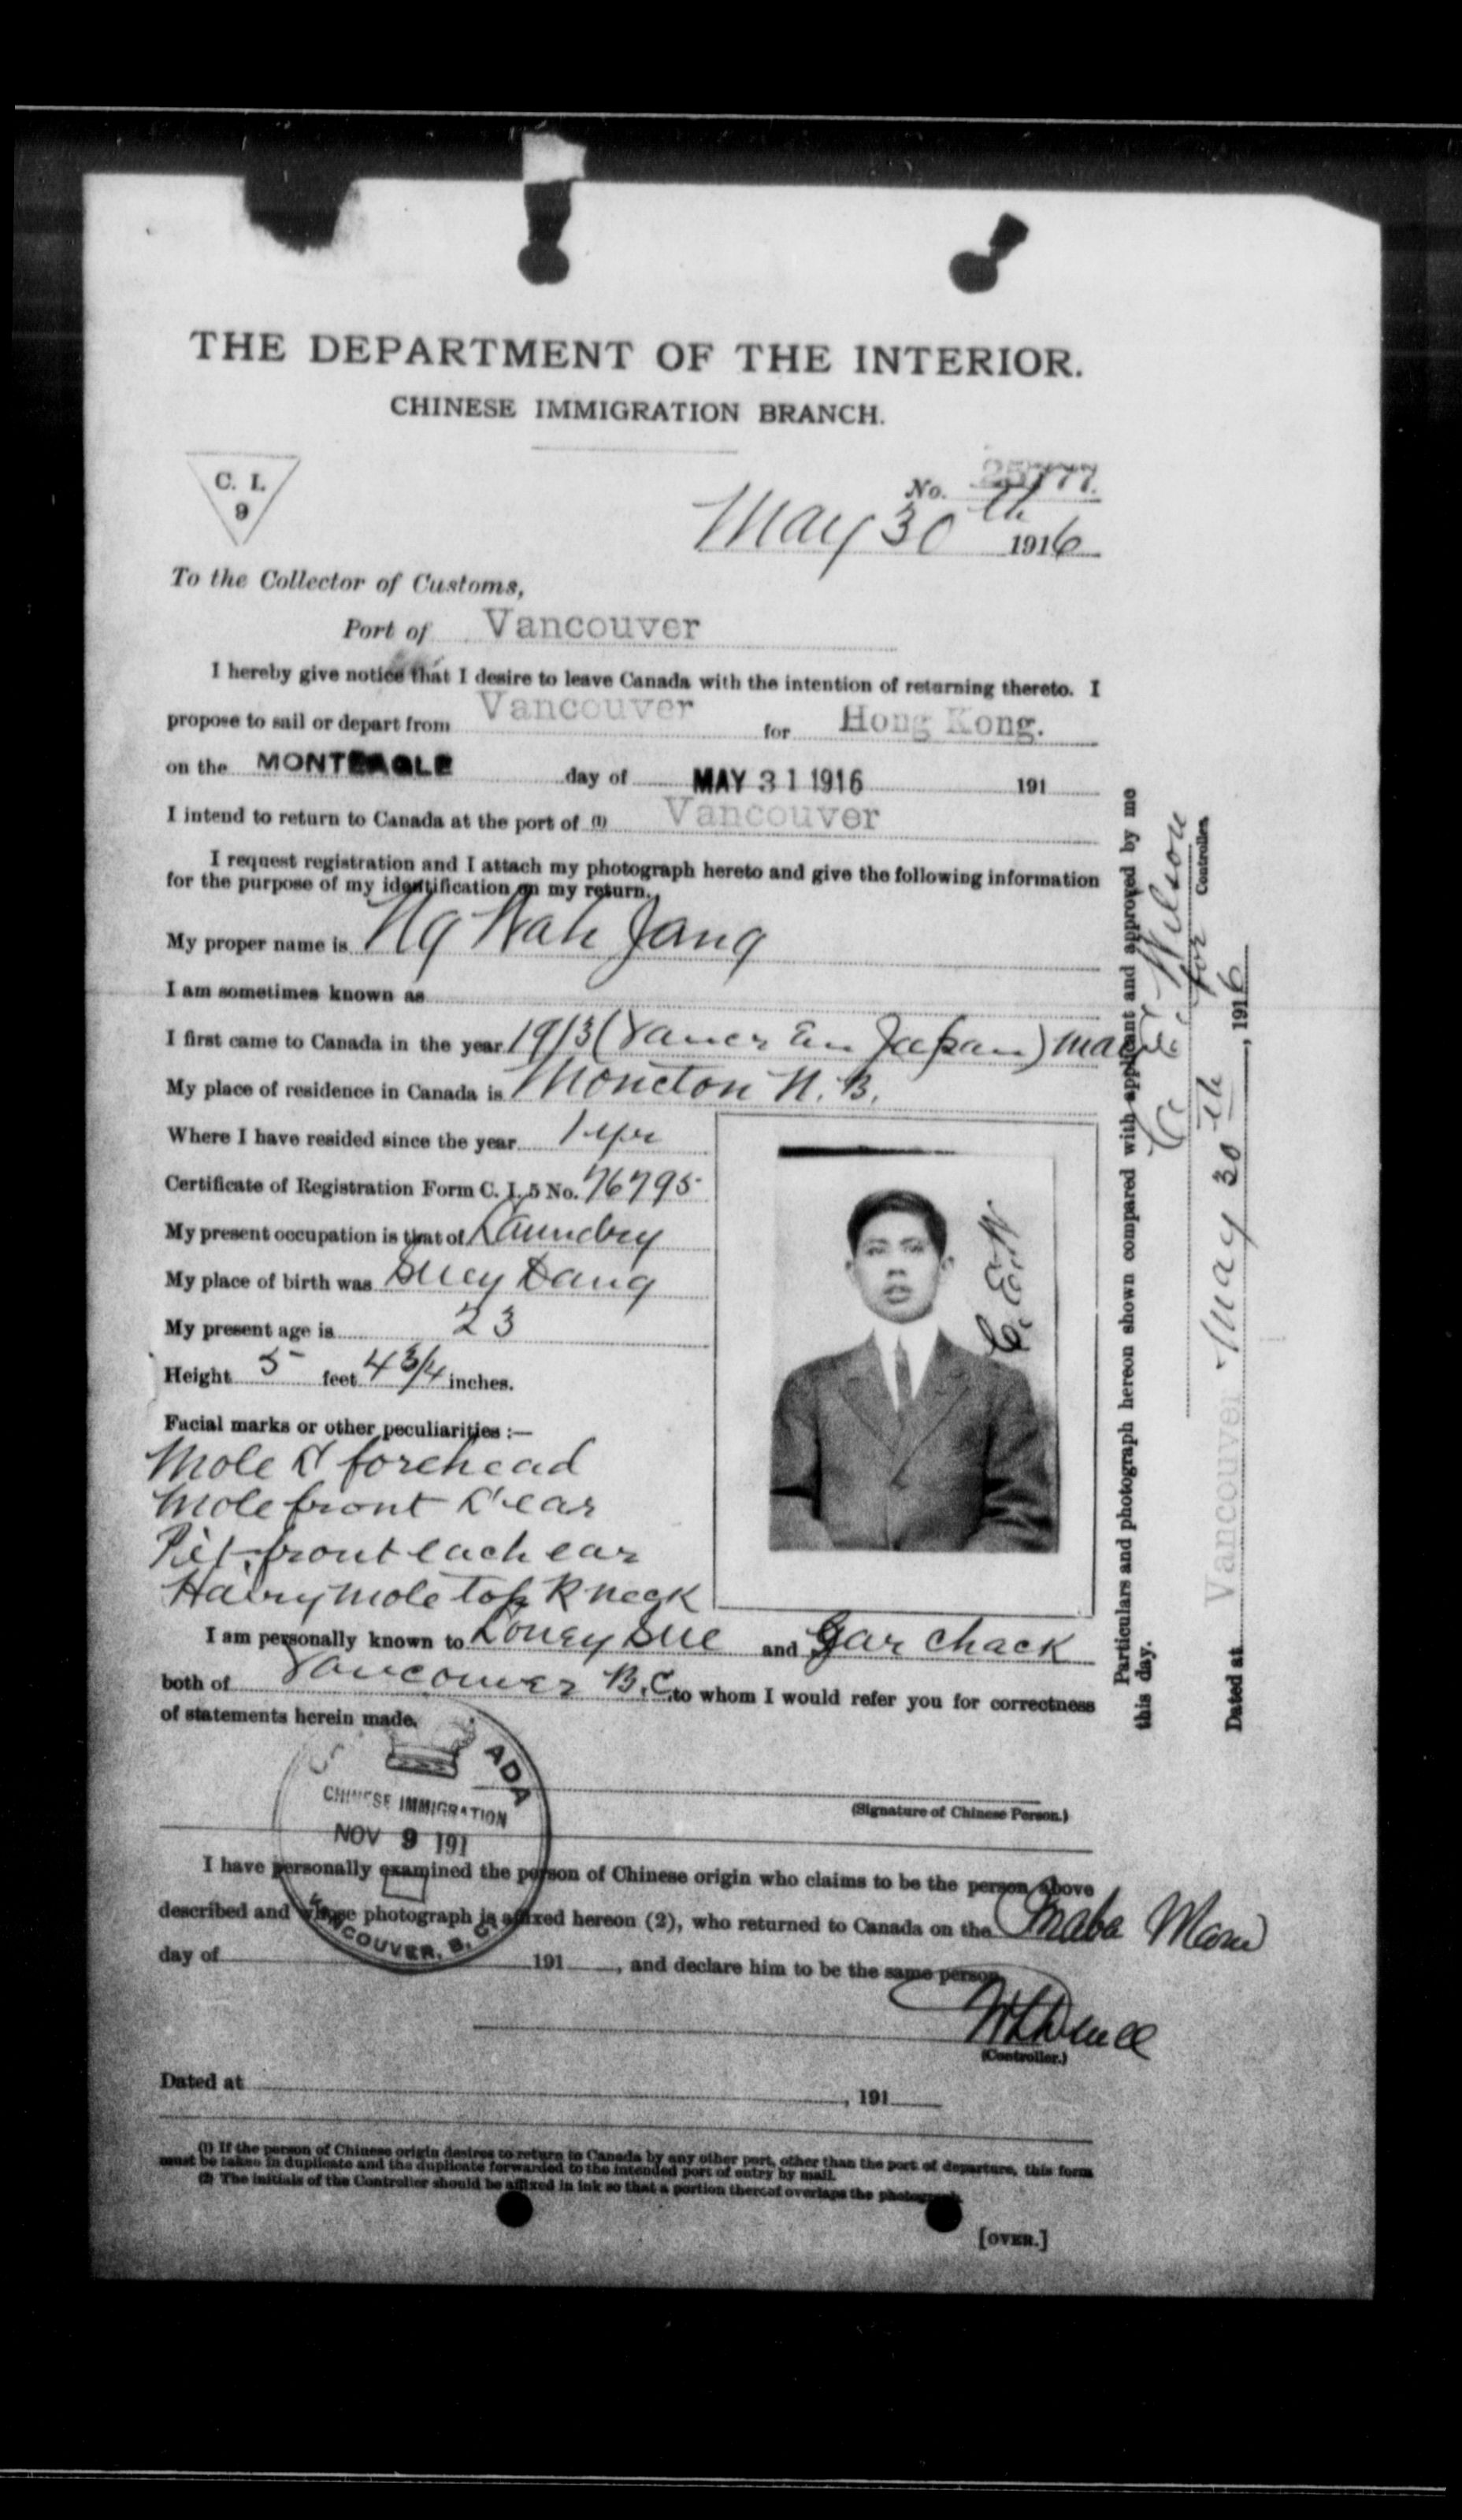 THE DEPARTMENT OF THE INTERIOR.
CHINESE IMMIGRATION BRANCH.
C. I.
9
No. 25777.
May 30th 1916
To the Collector of Customs,
Port of Vancouver
I hereby give notice that I desire to leave Canada with the intention of returning thereto. I
propose to sail or depart from Vancouver for Hong Kong.
on the MONTEAGLE day of MAY 31 1916 191
I intend to return to Canada at the port of (1) Vancouver
I request registration and I attach my photograph hereto and give the following information
for the purpose of my identification on my return.
My proper name is Ng Wah Jang
I am sometimes known as
I first came to Canada in the year 1913 (Vancr Em Japan) Mar
My place of residence in Canada is Moncton N. B.
Where I have resided since the year 1 yr
Certificate of Registration Form C. I. 5 No. 76795
My present occupation is that of Laundry
My place of birth was Suey Dang
My present age is 23
Height 5 feet 4 3/4 inches.
Facial marks or other peculiarities :—
Mole R forehead
Mole front R ear
Pit front each ear
Hairy mole top R neck
C. E. W.
I am personally known to Loney Sue and Gar Chack
both of Vancouver B.C. to whom I would refer you for correctness
of statements herein made.
(Signature of Chinese Person.)
ADA
CHINESE IMMIGRATION
NOV 9 191
VANCOUVER, B. C.
I have personally examined the person of Chinese origin who claims to be the person above
described and whose photograph is affixed hereon (2), who returned to Canada on the Inaba Maru
day of 191 , and declare him to be the same person
(Controller.)
Dated at , 191
(1) If the person of Chinese origin desires to return to Canada by any other port, other than the port of departure, this form
must be taken in duplicate and the duplicate forwarded to the intended port of entry by mail.
(2) The initials of the Controller should be affixed in ink so that a portion thereof overlaps the photograph.
[OVER.]
Particulars and photograph hereon shown compared with applicant and approved by me
this day.
C. E. Wilson
for Controller.
Dated at Vancouver May 30th, 1916